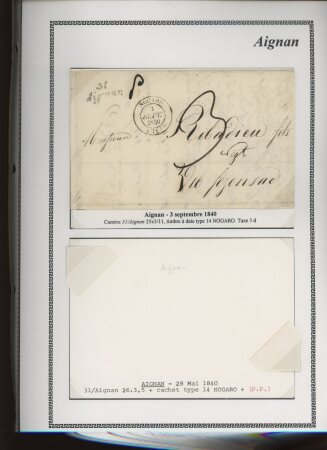 Aignan
31
Aignan
NOGARO
3
SEPT.
1840
(31)
Monsieur Ribadieu fils
Ngt
Vic fezensac
3
Aignan - 3 septembre 1840
Cursive 31/Aignan 25x3/11, timbre à date type 14 NOGARO. Taxe 3 d
Aignan
AIGNAN - 28 Mai 1840
31/Aignan 26.3,5 + cachet type 14 NOGARO + (P.P.)